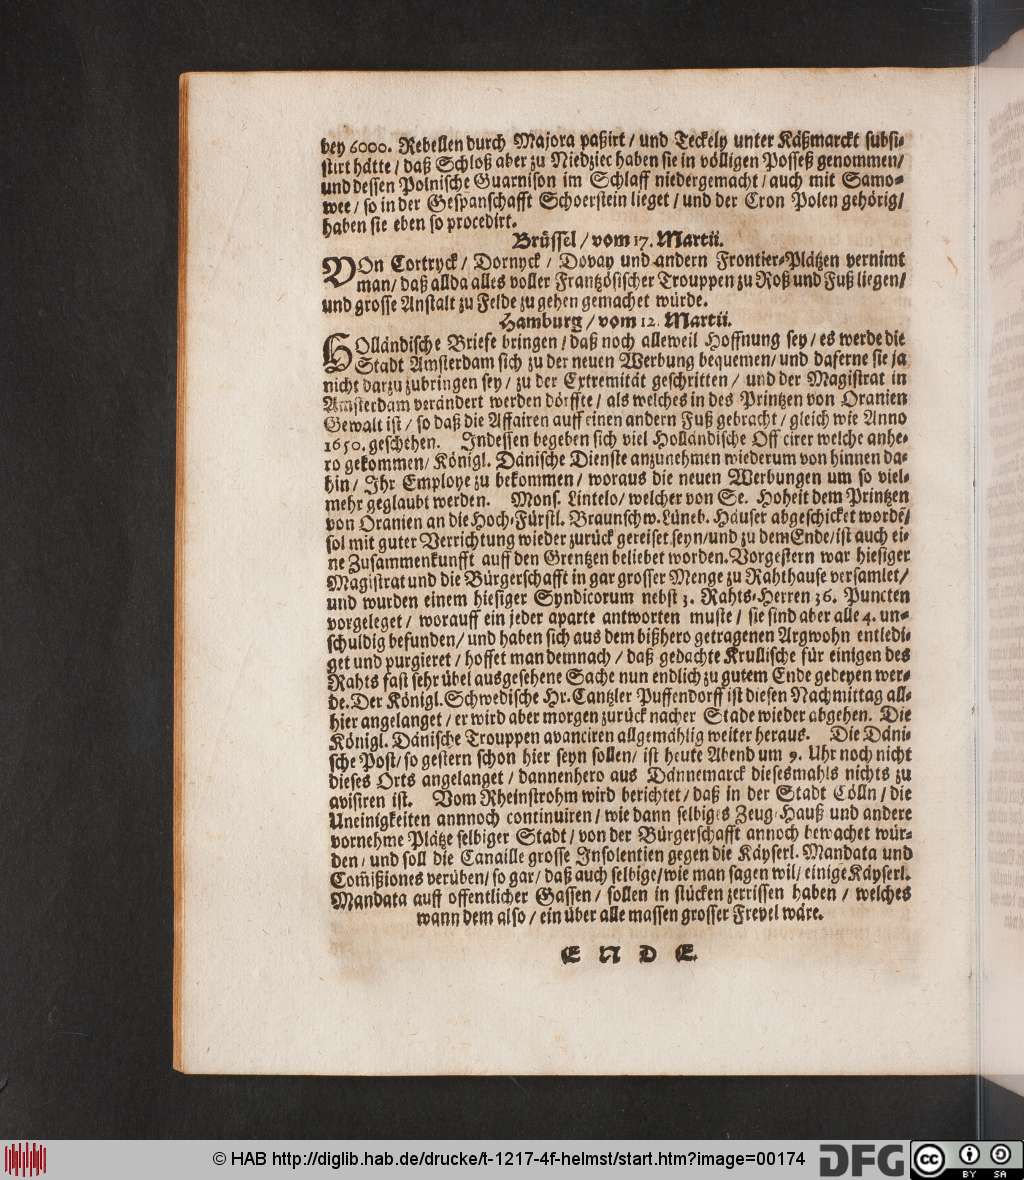 bey 6000. Rebellen durch Majora paßirt / und Teckely unter Käßmarckt subsi-
stirt hätte / daß Schloß aber zu Niedziec haben sie in völligen Posseß genommen/
und dessen Polnische Guarnison im Schlaff niedergemacht / auch mit Samo-
wee / so in der Gespanschafft Schoerstein lieget / und der Cron Polen gehörig/
haben sie eben so procedirt.
Brüssel / vom 17. Martii.
VOn Cortryck / Dornyck / Dovay und andern Frontier-Plätzen vernimt
man / daß allda alles voller Frantzösischer Trouppen zu Roß und Fuß liegen/
und grosse Anstalt zu Felde zu gehen gemachet würde.
Hamburg / vom 12. Martii.
HOlländische Briefe bringen / daß noch alleweil Hoffnung sey / es werde die
Stadt Amsterdam sich zu der neuen Werbung bequemen / und daferne sie ja
nicht darzu zubringen sey / zu der Extremität geschritten / und der Magistrat in
Amsterdam verändert werden dörffte / als welches in des Printzen von Oranien
Gewalt ist / so daß die Affairen auff einen andern Fuß gebracht / gleich wie Anno
1650. geschehen. Indessen begeben sich viel Holländische Officirer welche anhe-
ro gekommen / Königl. Dänische Dienste anzunehmen wiederum von hinnen da-
hin / Ihr Employe zu bekommen / woraus die neuen Werbungen um so viel-
mehr geglaubt werden. Mons. Lintelo / welcher von Se. Hoheit dem Printzen
von Oranien an die Hoch-Fürstl. Braunschw. Lüneb. Häuser abgeschicket wordē/
sol mit guter Verrichtung wieder zurück gereiset seyn / und zu dem Ende / ist auch ei-
ne Zusammenkunfft auff den Grentzen beliebet worden. Vorgestern war hiesiger
Magistrat und die Bürgerschafft in gar grosser Menge zu Rahthause versamlet/
und wurden einem hiesiger Syndicorum nebst 3. Rahts-Herren 36. Puncten
vorgeleget / worauff ein jeder aparte antworten muste / sie sind aber alle 4. un-
schuldig befunden / und haben sich aus dem bißhero getragenen Argwohn entledi-
get und purgieret / hoffet man demnach / daß gedachte Krullische für einigen des
Rahts fast sehr übel ausgesehene Sache nun endlich zu gutem Ende gedeyen wer-
de. Der Königl. Schwedische Hr. Cantzler Puffendorff ist diesen Nachmittag all-
hier angelanget / er wird aber morgen zurück nacher Stade wieder abgehen. Die
Königl. Dänische Trouppen avanciren allgemählig weiter heraus. Die Däni-
sche Post / so gestern schon hier seyn sollen / ist heute Abend um 9. Uhr noch nicht
dieses Orts angelanget / dannenhero aus Dännemarck diesesmahls nichts zu
avisiren ist. Vom Rheinstrohm wird berichtet / daß in der Stadt Cölln / die
Uneinigkeiten annnoch continuiren / wie dann selbiges Zeug-Hauß und andere
vornehme Plätze selbiger Stadt / von der Bürgerschafft annoch bewachet wür-
den / und soll die Canaille grosse Insolentien gegen die Käyserl. Mandata und
Com̃ißiones verüben / so gar / daß auch selbige / wie man sagen wil / einige Käyserl.
Mandata auff offentlicher Gassen / sollen in stücken zerrissen haben / welches
wann dem also / ein über alle massen grosser Frevel wäre.
E N D E
© HAB http://diglib.hab.de/drucke/t-1217-4f-helmst/start.htm?image=00174
DFG
cc BY SA